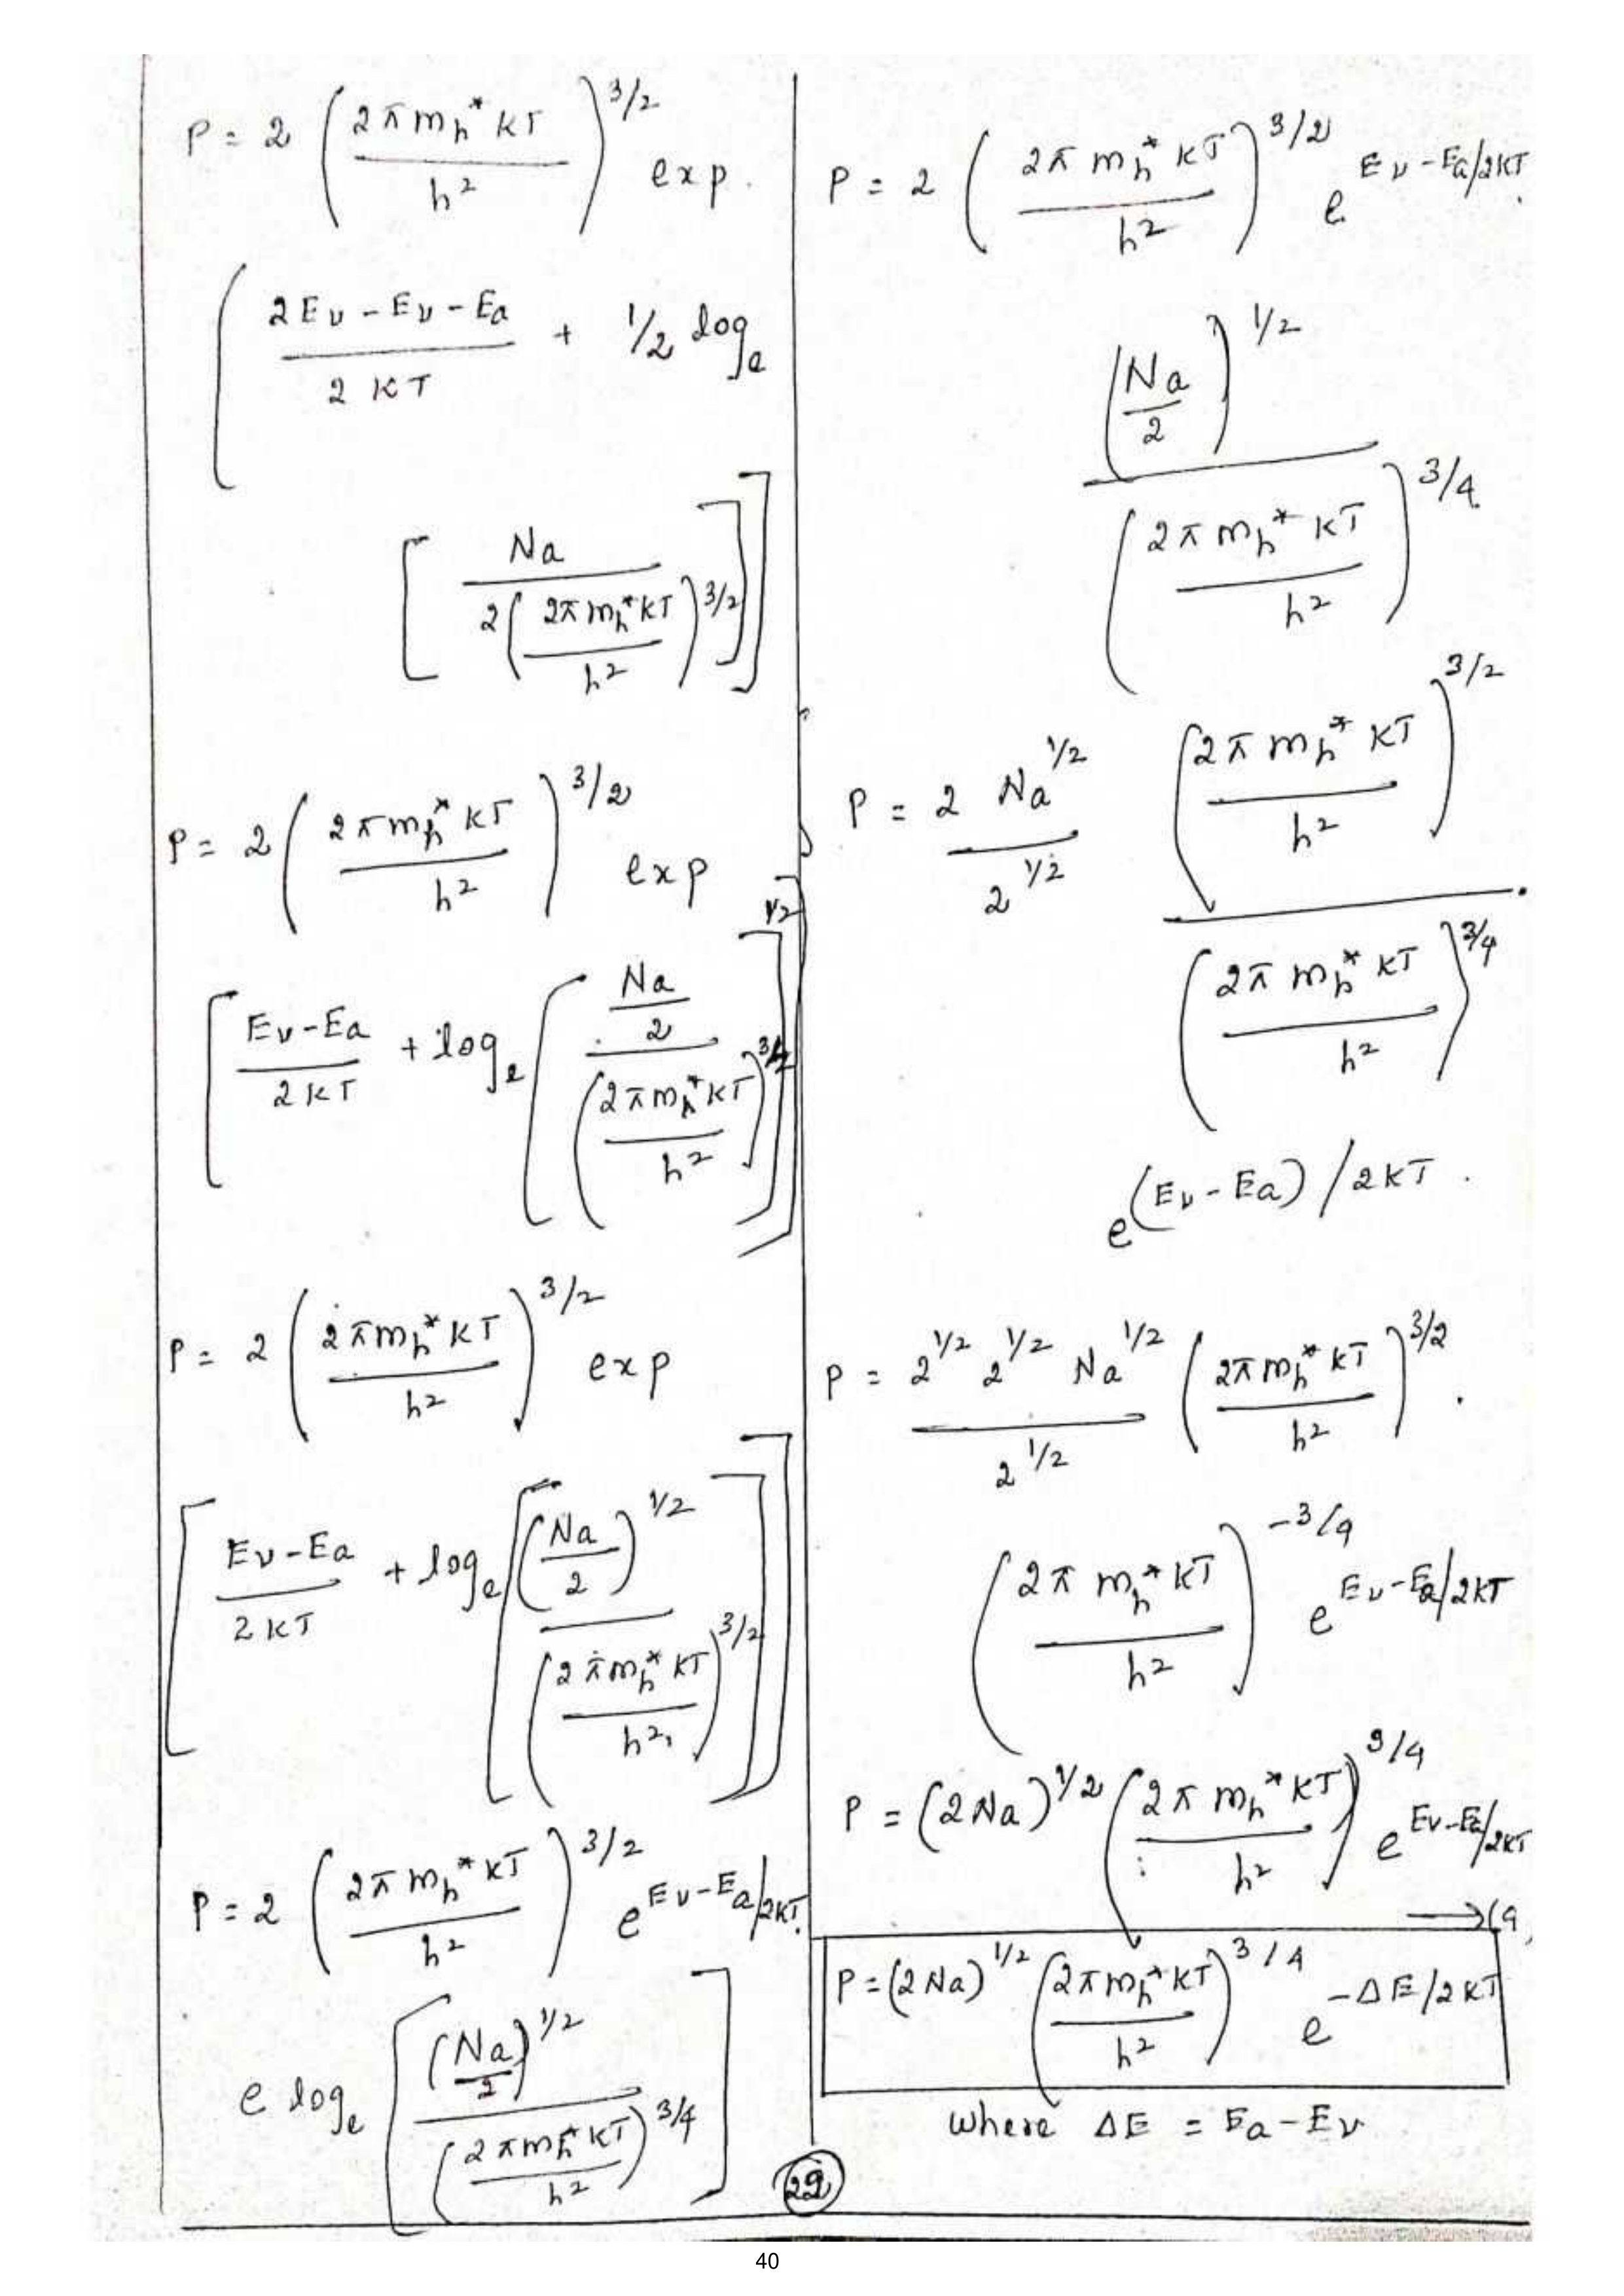 P = 2 ( 2π m_h* kT / h² )^3/2 exp.
( 2Ev - Ev - Ea / 2KT + 1/2 log_e
[ Na / 2( 2π m_h* kT / h² )^3/2 ] ]
P = 2 ( 2π m_h* kT / h² )^3/2 exp
[ Ev - Ea / 2KT + log_e [ Na/2 / ( 2π m_h* kT / h² )^3/2 ]^1/2 ]
P = 2 ( 2π m_h* kT / h² )^3/2 exp
[ Ev - Ea / 2KT + log_e [ (Na/2)^1/2 / ( 2π m_h* kT / h² )^3/2 ] ]
P = 2 ( 2π m_h* kT / h² )^3/2 e^Ev - Ea/2KT.
e log_e [ (Na/2)^1/2 / ( 2π m_h* kT / h² )^3/4 ]
P = 2 ( 2π m_h* kT / h² )^3/2 e^Ev - Ea/2KT.
(Na/2)^1/2 / ( 2π m_h* kT / h² )^3/4
P = 2 Na^1/2 / 2^1/2 ( 2π m_h* kT / h² )^3/2 / ( 2π m_h* kT / h² )^3/4 .
e^(Ev - Ea) / 2KT .
P = 2^1/2 2^1/2 Na^1/2 / 2^1/2 ( 2π m_h* kT / h² )^3/2 .
( 2π m_h* kT / h² )^-3/4 e^Ev - Ea/2KT
P = (2Na)^1/2 ( 2π m_h* kT / h² )^3/4 e^Ev - Ea/2KT
→ (9
P = (2Na)^1/2 ( 2π m_h* kT / h² )^3/4 e^-ΔE/2KT
where ΔE = Ea - Ev
29
40